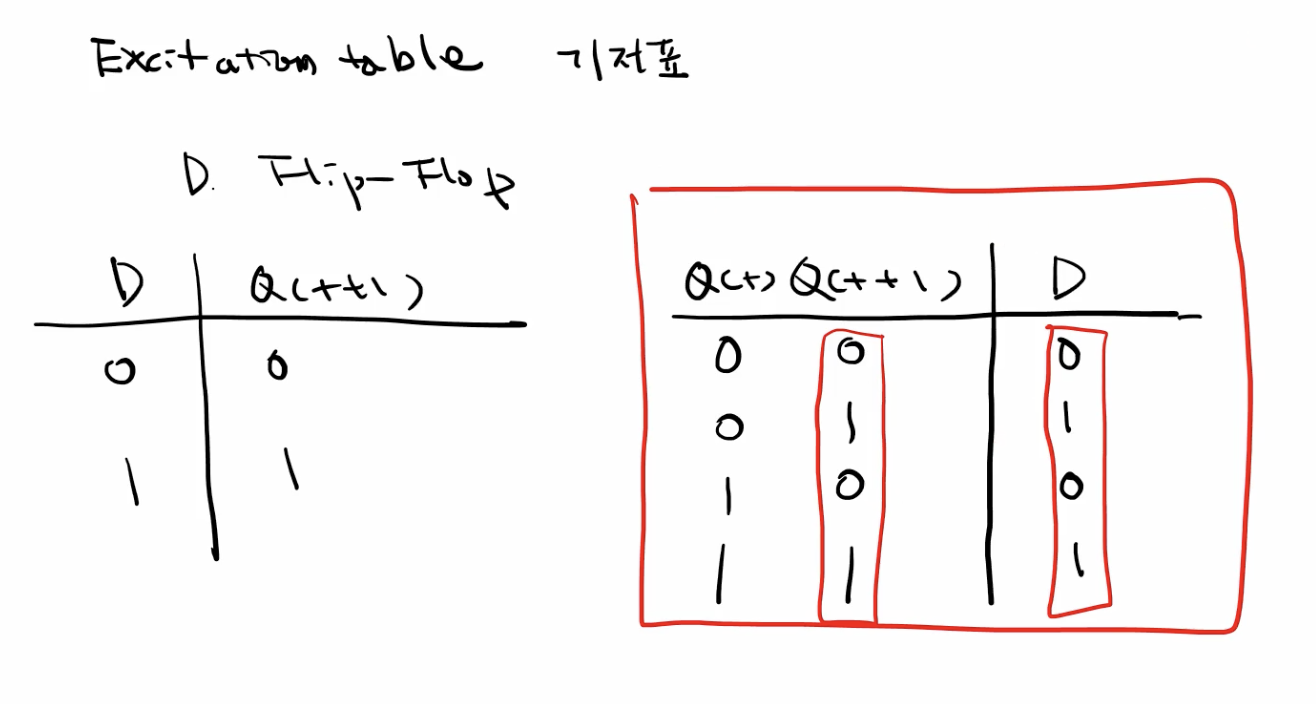 Excitation table 기저표
D. Flip-Flop
D Q(t+1)
0 0
1 1
Q(t) Q(t+1) D
0 0 0
0 1 1
1 0 0
1 1 1